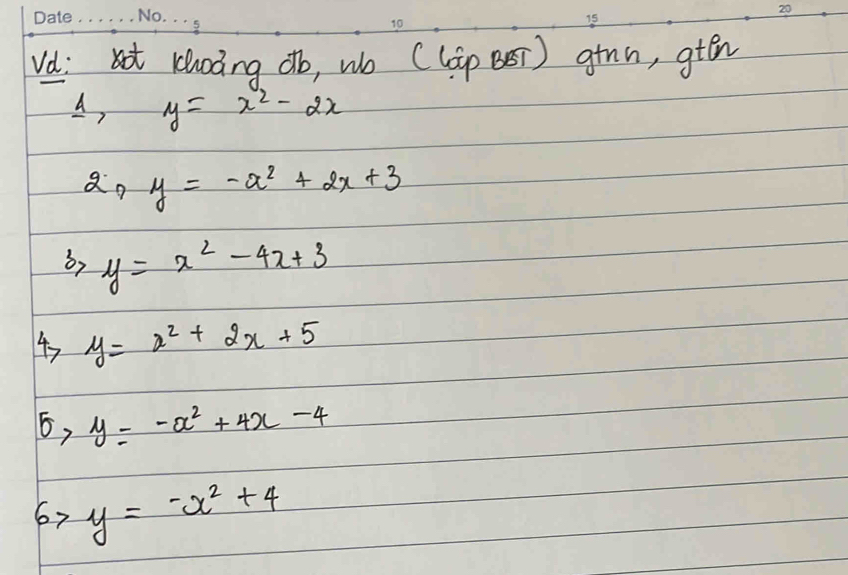 Date ...... No. ... 5 10 15 20
Vd: xét khoảng đb, nb (lập BBT) gtnn, gtln
1, y = x² - 2x
2, y = -x² + 2x + 3
3> y = x² - 4x + 3
4> y = x² + 2x + 5
5> y = -x² + 4x - 4
6> y = -x² + 4